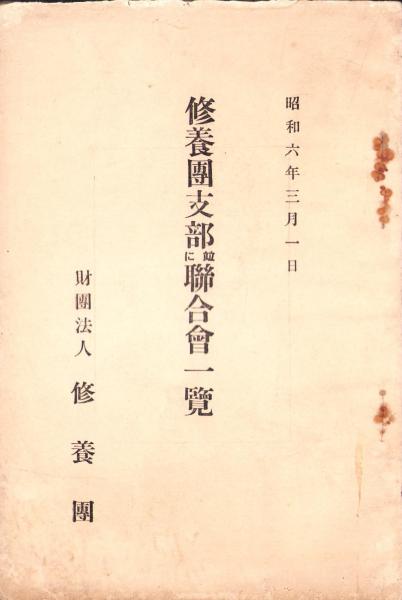 昭和六年三月一日
修養團支部並に聯合會一覽
財團法人 修養團